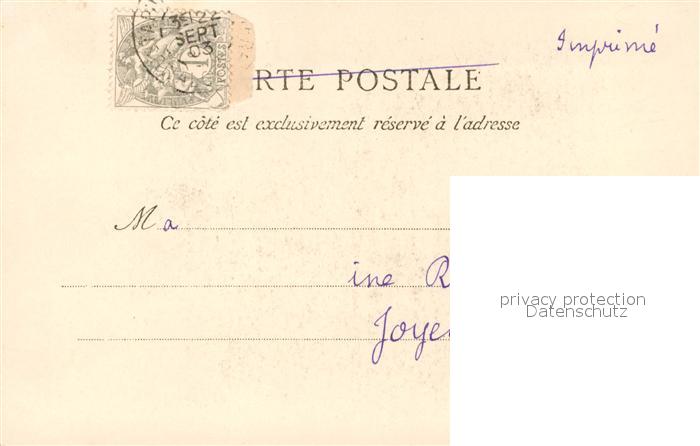 22
SEPT
03
POSTES
Imprimé
RTE POSTALE
Ce côté est exclusivement réservé à l'adresse
Ma
ine R
Joye
privacy protection
Datenschutz